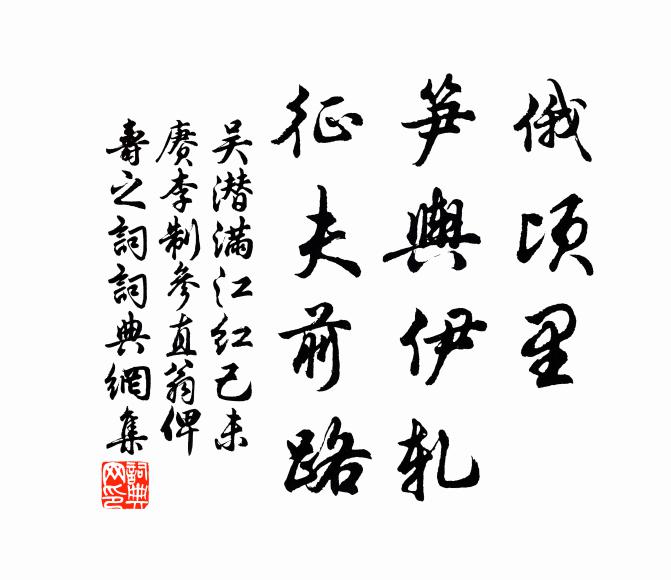 俄顷里
笋舆伊轧
征夫前路
吴潜满江红己未
赓李制参直翁俾
寿之詞詞典網集
詞典网印